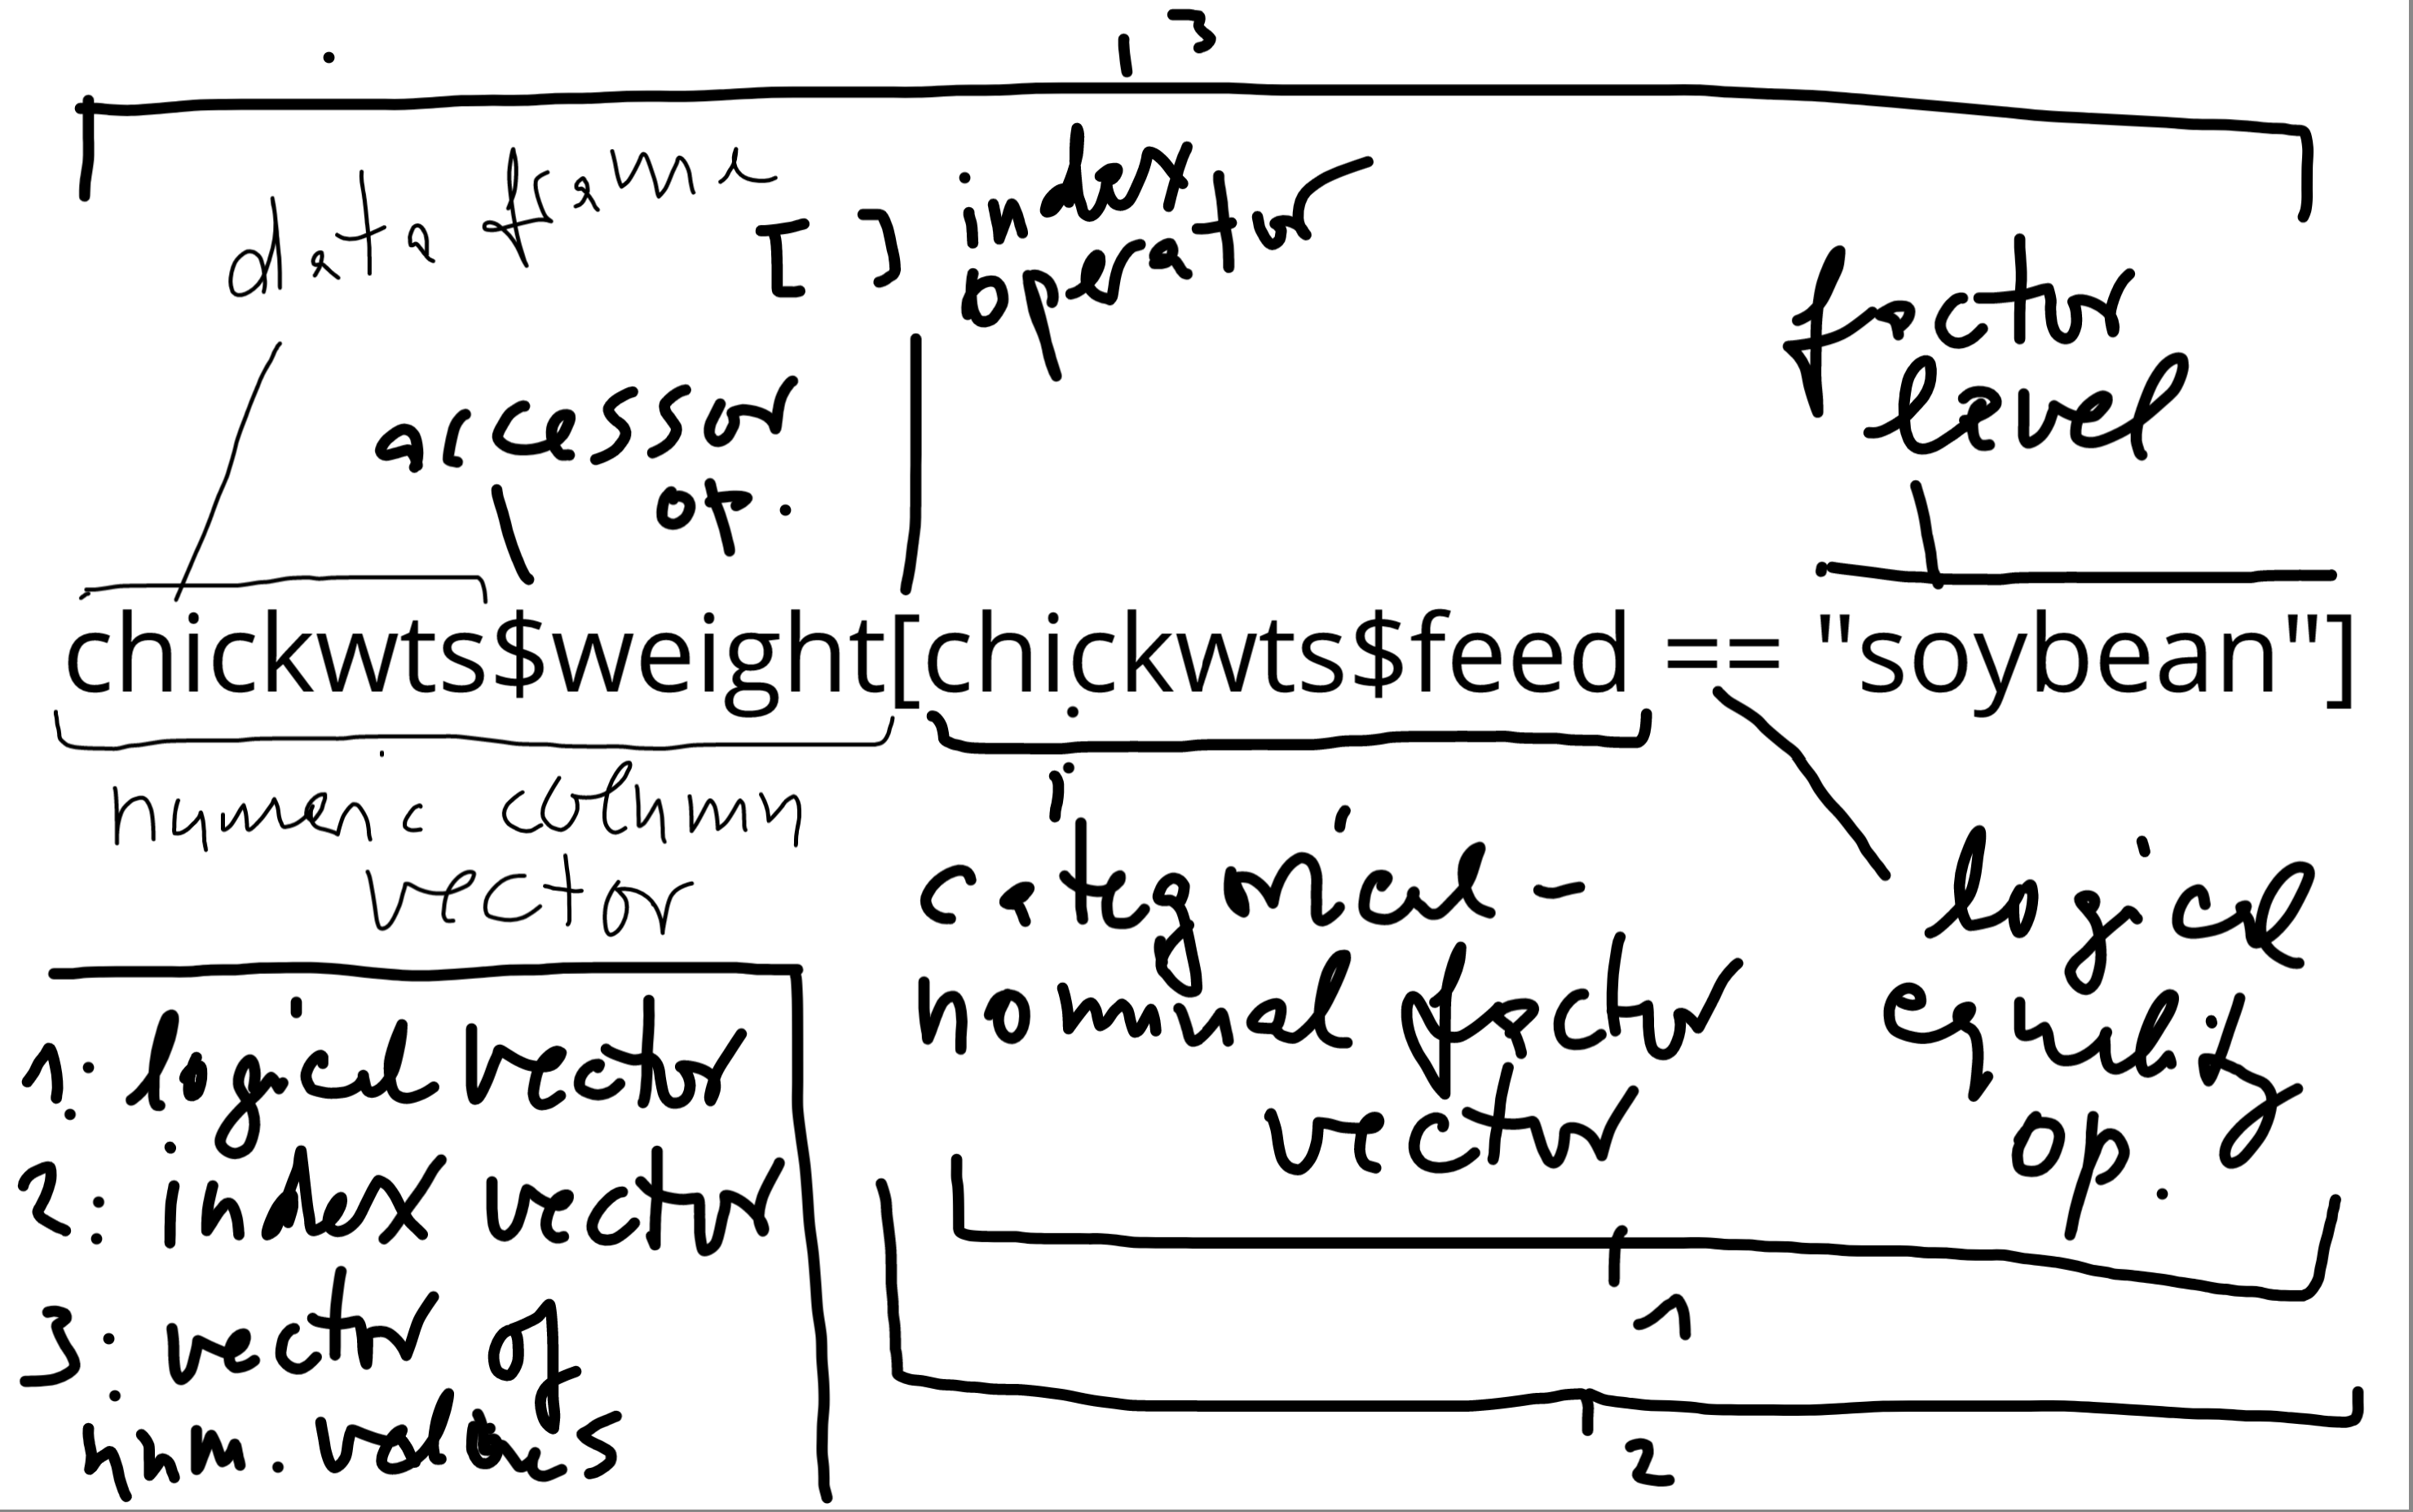 3
data frame
[ ] index
operator
accessor
op.
factor
level
chickwts$weight[chickwts$feed == "soybean"]
numeric column
vector
categorical -
nominal factor
vector
logical
equality
op.
1
2
1: logical vector
2: index vector
3: vector of
num. values